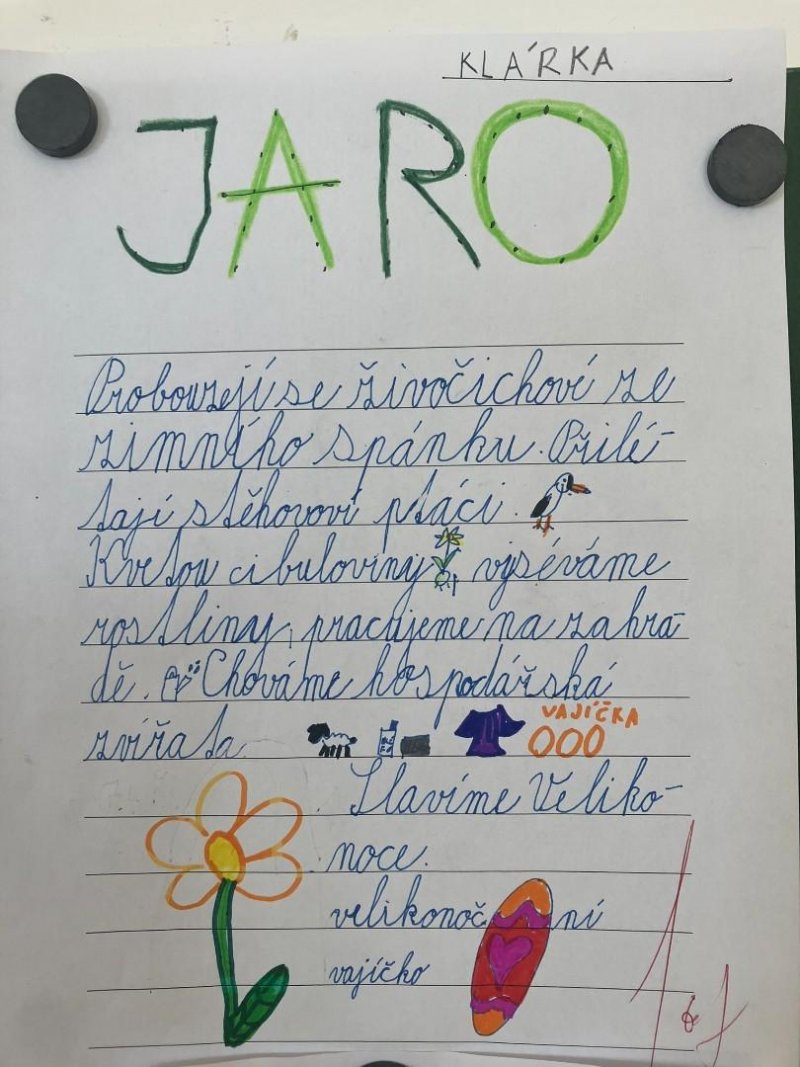 KLÁRKA
JARO
Probouzejí se živočichové ze
zimního spánku. Přilé-
tají stěhovaví ptáci.
Kvetou cibuloviny, vyséváme
rostliny, pracujeme na zahra-
dě. Chováme hospodářská
zvířata
VAJÍČKA
Slavíme Veliko-
noce.
velikonoční
vajíčko
1